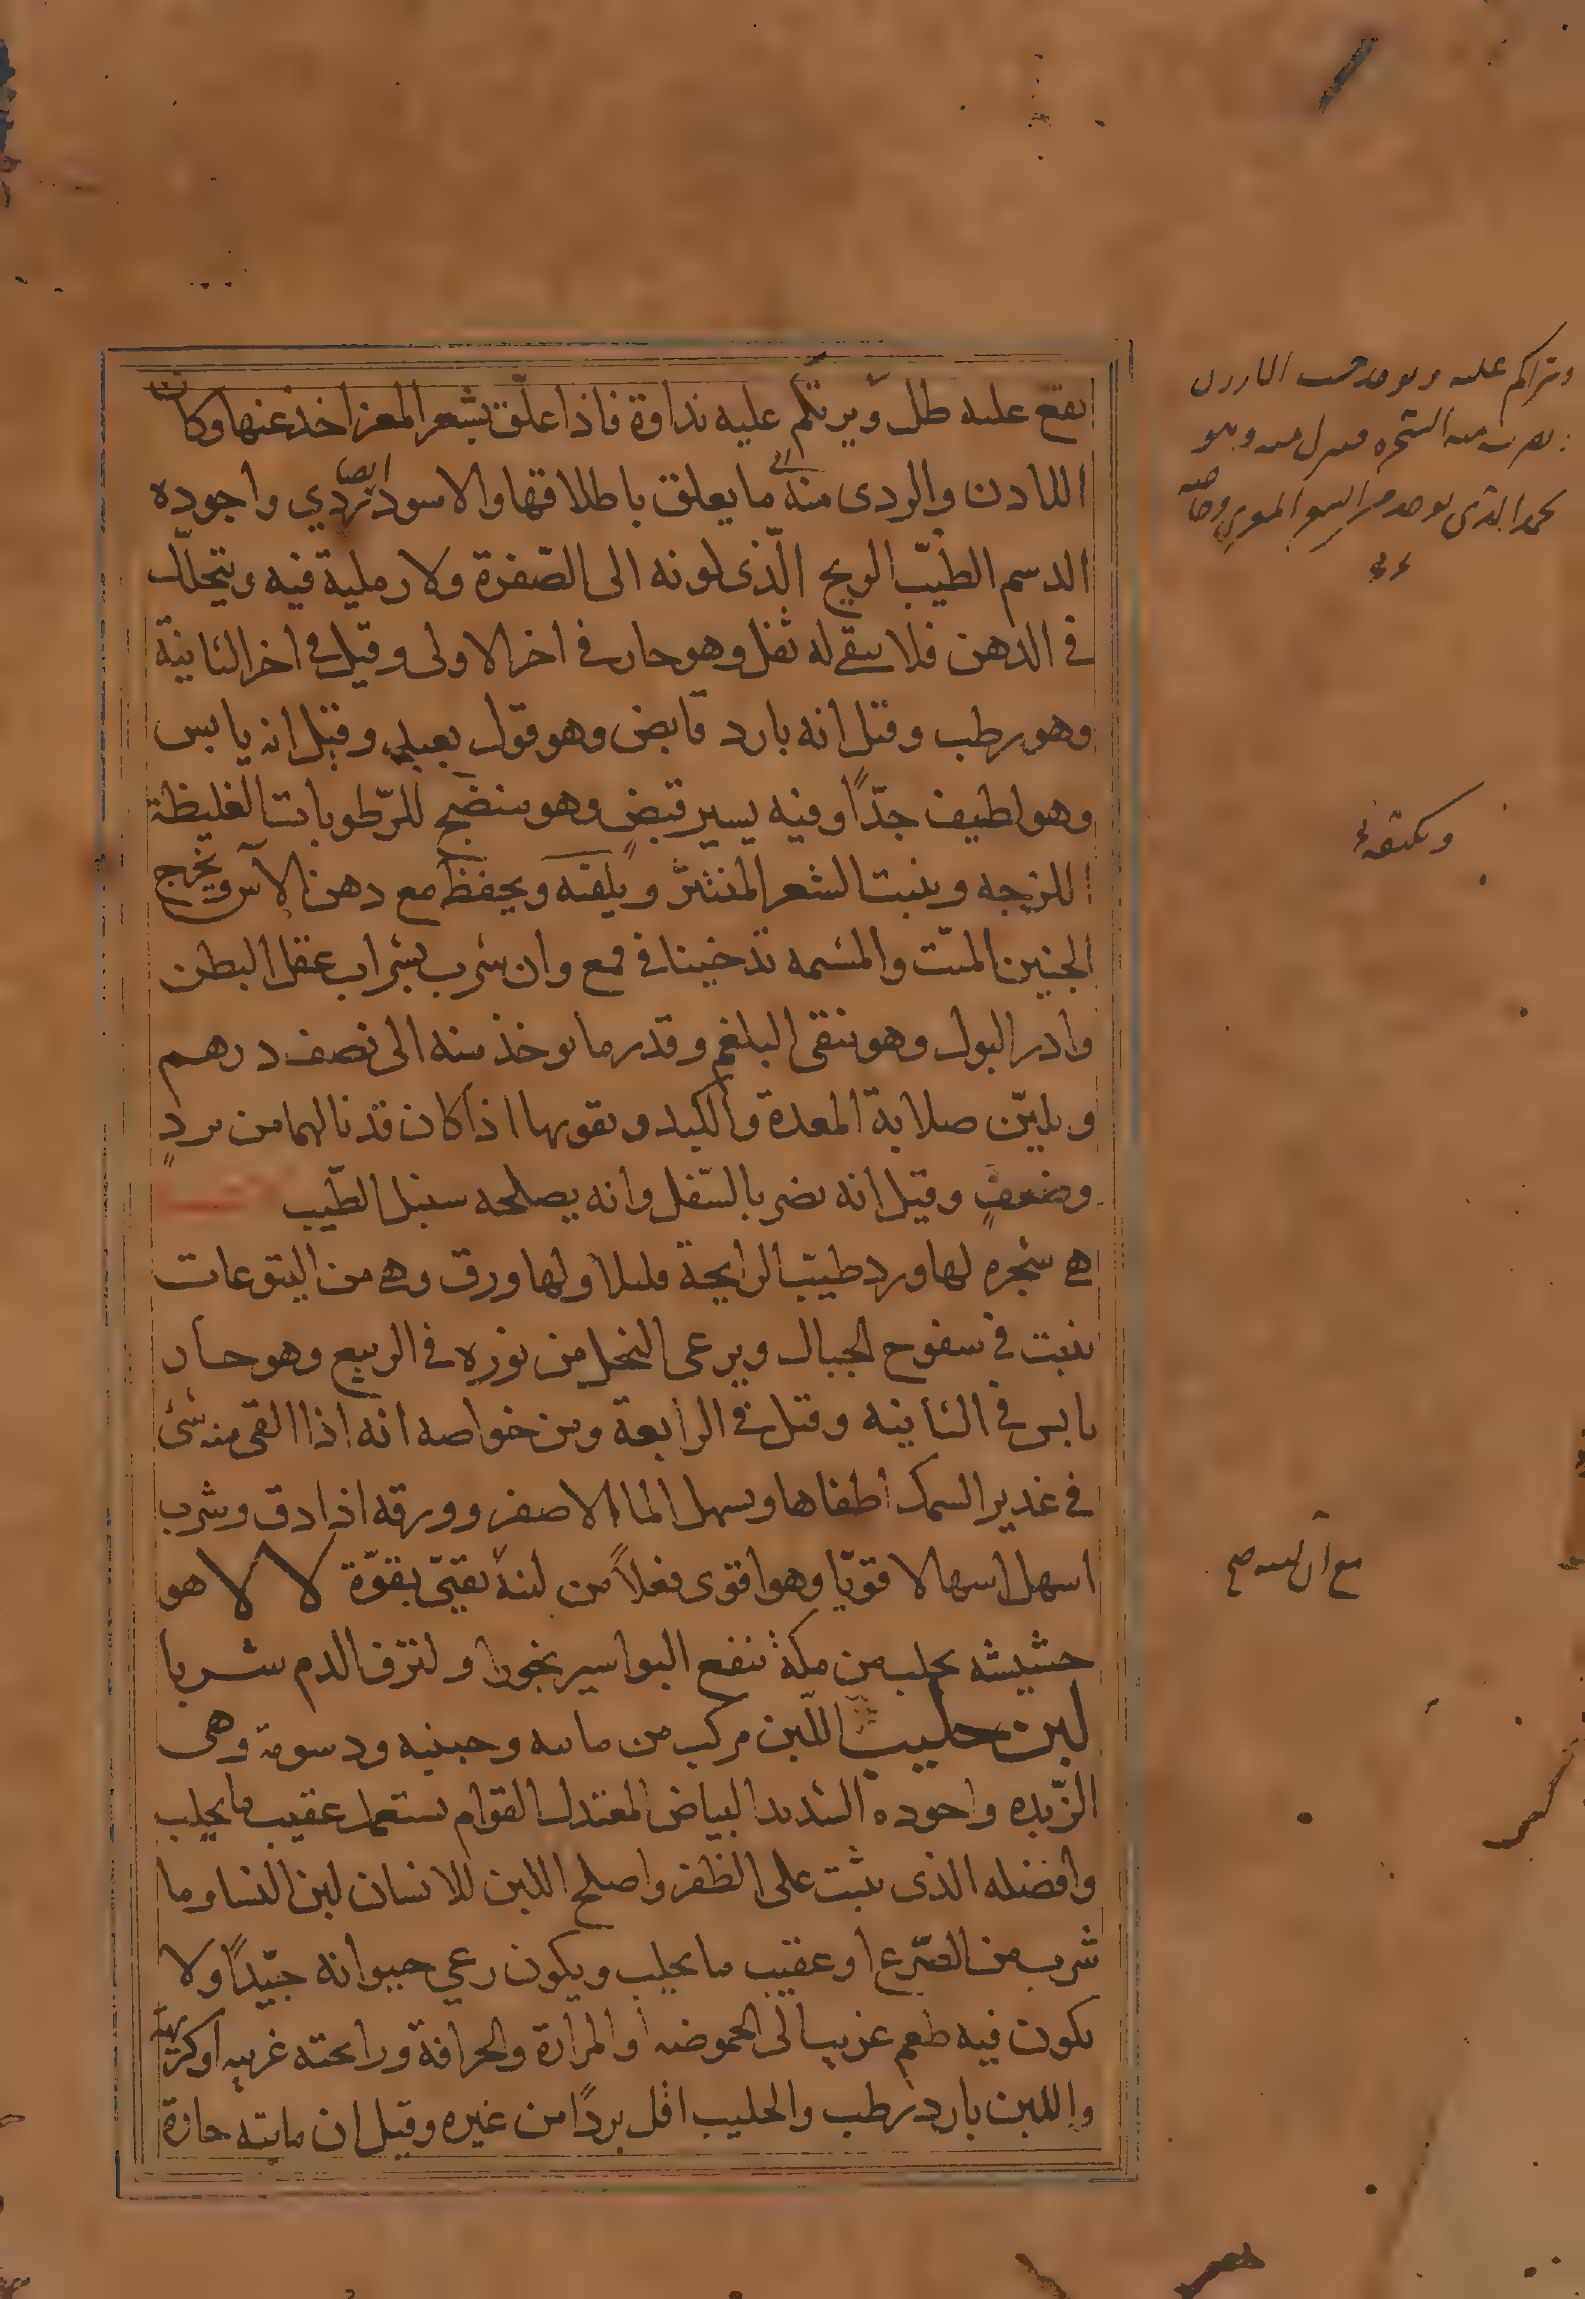 يقع عليه طل ويرتكم عليه نداوة فاذا علّق بشعر المعز اخذ عنها وكان
اللادن والردى منه ما يعلق باطلافها والاسود ايضا ردي واجوده
الدسم الطيّب الريح الّذى لونه الى الصّفرة ولا رملية فيه ويتحلّل
في الدهن فلا يبقى له ثفل وهو حار في اخر الاولى وقيل في اخر الثانية
وهو رطب وقيل انه بارد قابض وهو قول بعيد وقيل انه يابس
وهو لطيف جدّاً وفيه يسير قبضٍ وهو منضج للرّطوبات الغليظة
اللزجه وينبت الشعر المنتثر ويكثفه ويحفظ مع دهن الآس ويخرج
الجنين الميّت والمشيمه تدخينا في قمع وان شرب بشراب عقل البطن
وادر البول وهو ينقى البلغم وقدر ما يوخذ منه الى نصف درهم
ويليّن صلابة المعدة والكبد ويقويها اذا كان قد نالهما من بردٍ
وضعفٍ وقيل انه يضر بالسّفل وانه يصلحه سنبل الطّيب
هي شجره لها ورد طيّب الرايحة قليلا ولها ورق وهي من اليتوعات
ينبت في سفوح الجبال ويرعى النحل من نوره في الربيع وهو حار
يابس في الثانيه وقيل في الرابعة ومن خواصه انه اذا القى منه شئ
في غدير السمك اطفاها ويسهل الما الاصفر وورقه اذا دق وشرب
اسهل اسهالا قويّا وهو اقوى فعلاً من لبنه يقيّئ بقوّة لا لا هو
حشيشه يجلب من مكة ينفع البواسير بخورا ولنزف الدم شربا
لبن حليب اللّبن مركب من مائيه وجبنيه ودسومة وهى
الزّبده واجوده الشديد البياض المعتدل القوام يستعمل عقيب ما يحلب
وافضله الذى يثبت على الظفر واصلح اللبن للانسان لبن النسا وما
شرب من الضّرع او عقيب ما يحلب ويكون رعي حيوانه جيّداً ولا
يكون فيه طعم غريب الى الحموضه او المرارة والحرافة ورائحته غريبه او كريهة
واللبن بارد رطب والحليب اقل برداً من غيره وقيل ان مايته حارة
ويتراكم عليه
ويكثفه